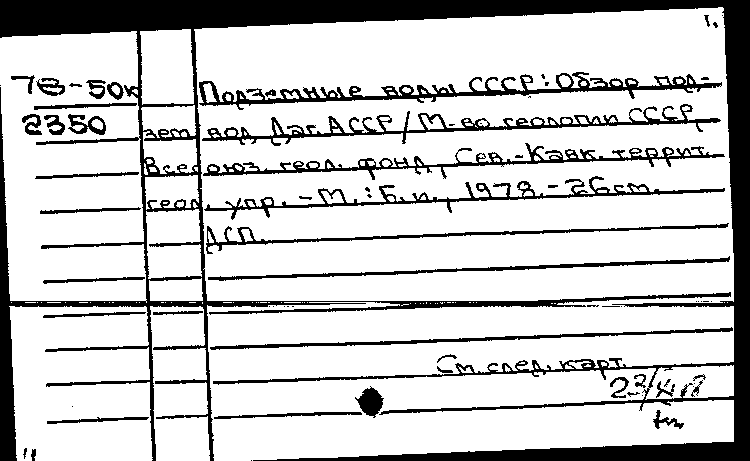 1.
78-50к Подземные воды СССР: Обзор под-
2350 зем. вод Даг. АССР / М-во геологии СССР,
Всесоюз. геол. фонд, Сев.-Кавк. террит.
геол. упр. - М.: Б. и., 1978. - 26 см.
ДСП.
См. след. карт.
23/XI